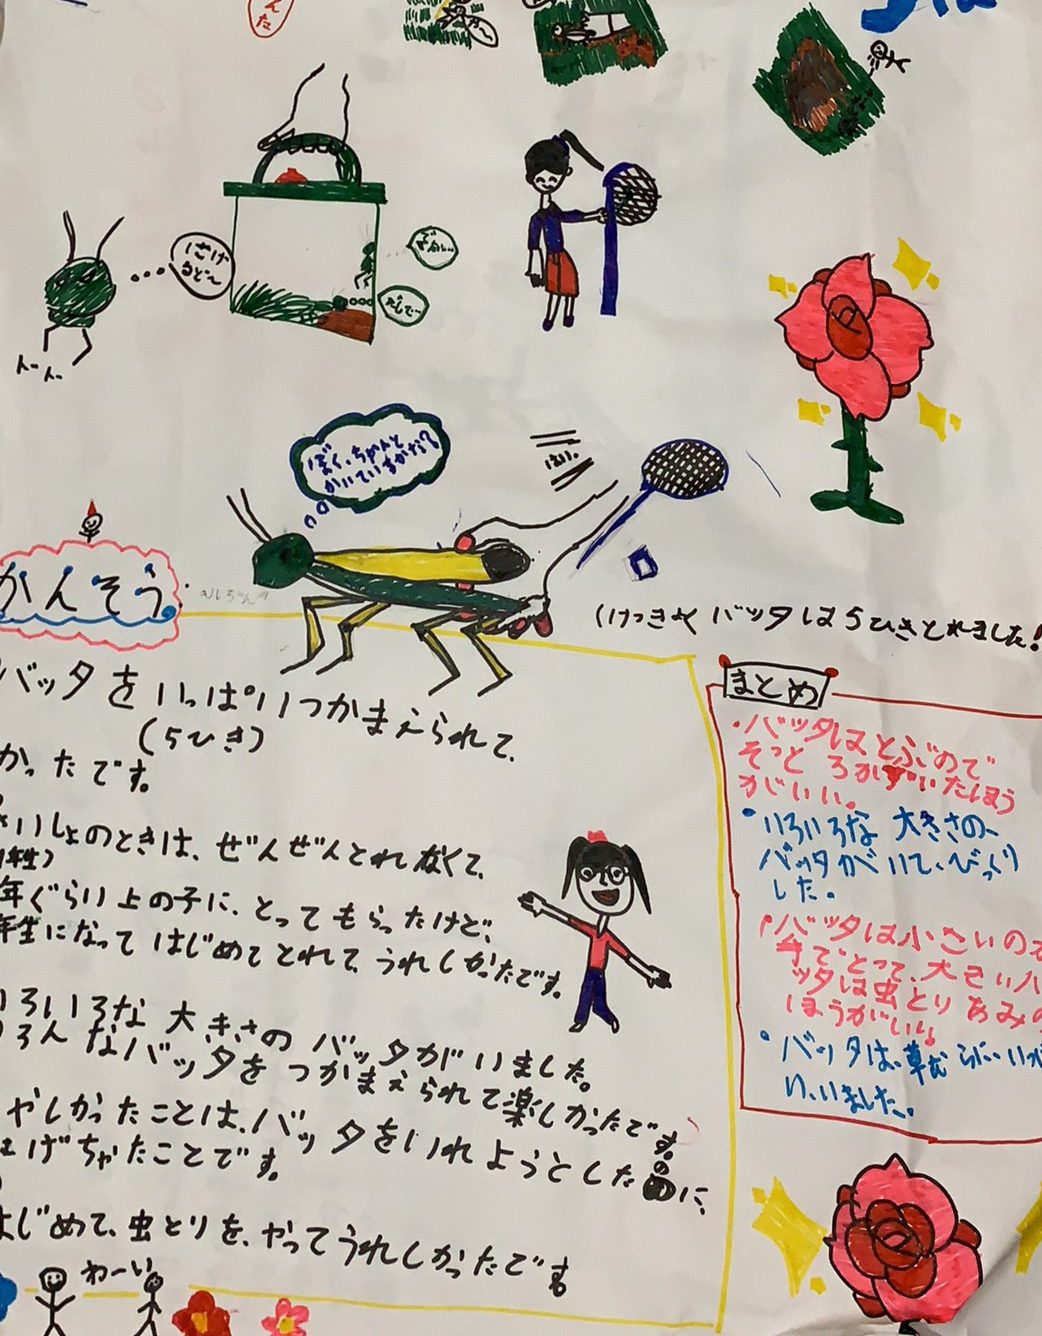 んた
にげ
るど〜
だして…
トートー
ぼく、ちゃんと
かいているかな?
はい。
かんそう
けっきょく バッタは5ひきとれました!
バッタをいっぱいつかまえられて、
(5ひき)
かったです。
さいしょのときは、ぜんぜんとれなくて、
1年生)
年ぐらい上の子に、とってもらったけど、
年生になってはじめてとれて、うれしかったです。
いろいろな大きさのバッタがいました。
いろんなバッタをつかまえられて楽しかったです。
やしかったことは、バッタをいれようとしたのに、
にげちゃたことです。
はじめて、虫とりを、やってうれしかったです
わーい
まとめ
・バッタはとぶので
そっと ちかずいたほう
がいい。
・いろいろな大きさの、
バッタがいて、びっくり
した。
・バッタは小さいのを
手でとって、大きいバ
ッタは虫とりあみの
ほうがいい。
・バッタは、草むらに、いっぱ
い、いました。